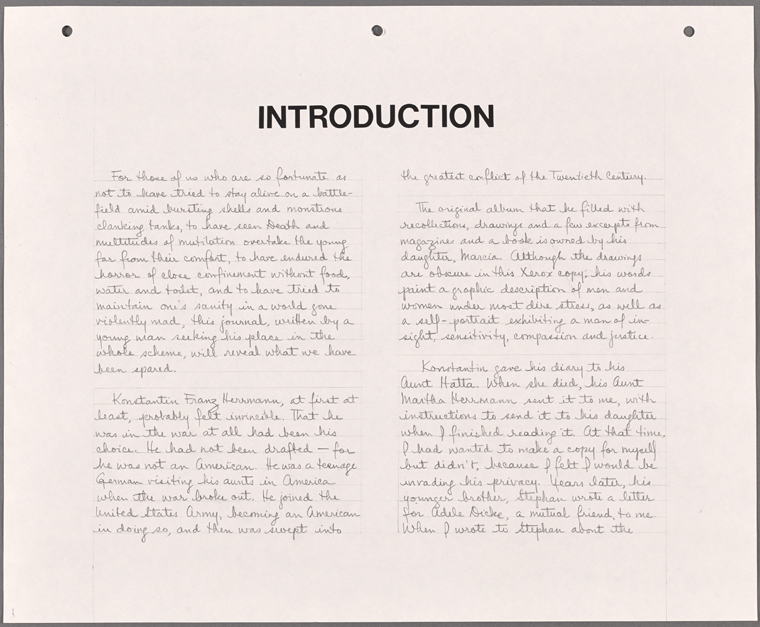 INTRODUCTION
For those of us who are so fortunate as
not to have tried to stay alive on a battle-
field amid bursting shells and monstrous
clanking tanks, to have seen Death and
multitudes of mutilation overtake the young
far from their comfort, to have endured the
horror of close confinement without food,
water and toilet, and to have tried to
maintain one's sanity in a world gone
violently mad, this journal, written by a
young man seeking his place in the
whole scheme, will reveal what we have
been spared.
Konstantin Franz Herrmann, at first at
least, probably felt invincible. That he
was in the war at all had been his
choice. He had not been drafted — for
he was not an American. He was a teenage
German visiting his aunts in America
when the war broke out. He joined the
United States Army, becoming an American
in doing so, and then was swept into
the greatest conflict of the Twentieth Century.
The original album that he filled with
recollections, drawings and a few excerpts from
magazines and a book is owned by his
daughter, Marcia. Although the drawings
are obscure in this Xerox copy, his words
paint a graphic description of men and
women under most dire stress, as well as
a self-portrait exhibiting a man of in-
sight, sensitivity, compassion and justice.
Konstantin gave his diary to his
Aunt Hatta. When she died, his Aunt
Martha Herrmann sent it to me, with
instructions to send it to his daughter
when I finished reading it. At that time,
I had wanted to make a copy for myself
but didn't, because I felt I would be
invading his privacy. Years later, his
younger brother, Stephan wrote a letter
for Adele Dicke, a mutual friend, to me.
When I wrote to Stephan about the